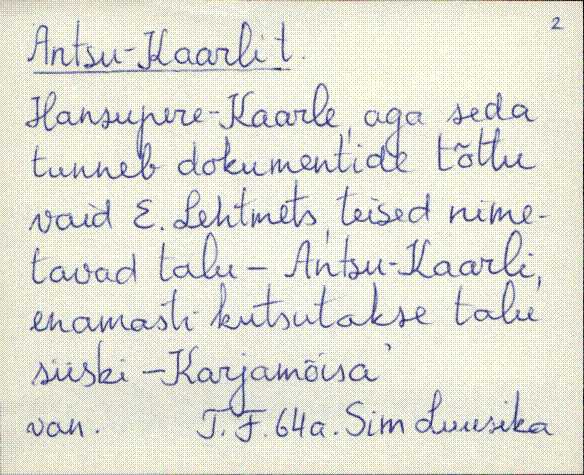 2
Antsu-Kaarli t.
Hansupere-Kaarle, aga seda
tunneb dokumentide tõttu
vaid E. Lehtmets, teised nime-
tavad talu – Antsu-Kaarli,
enamasti kutsutakse talu
siiski – Karjamõisa'
van. T. F. 64a. Sim Luusika